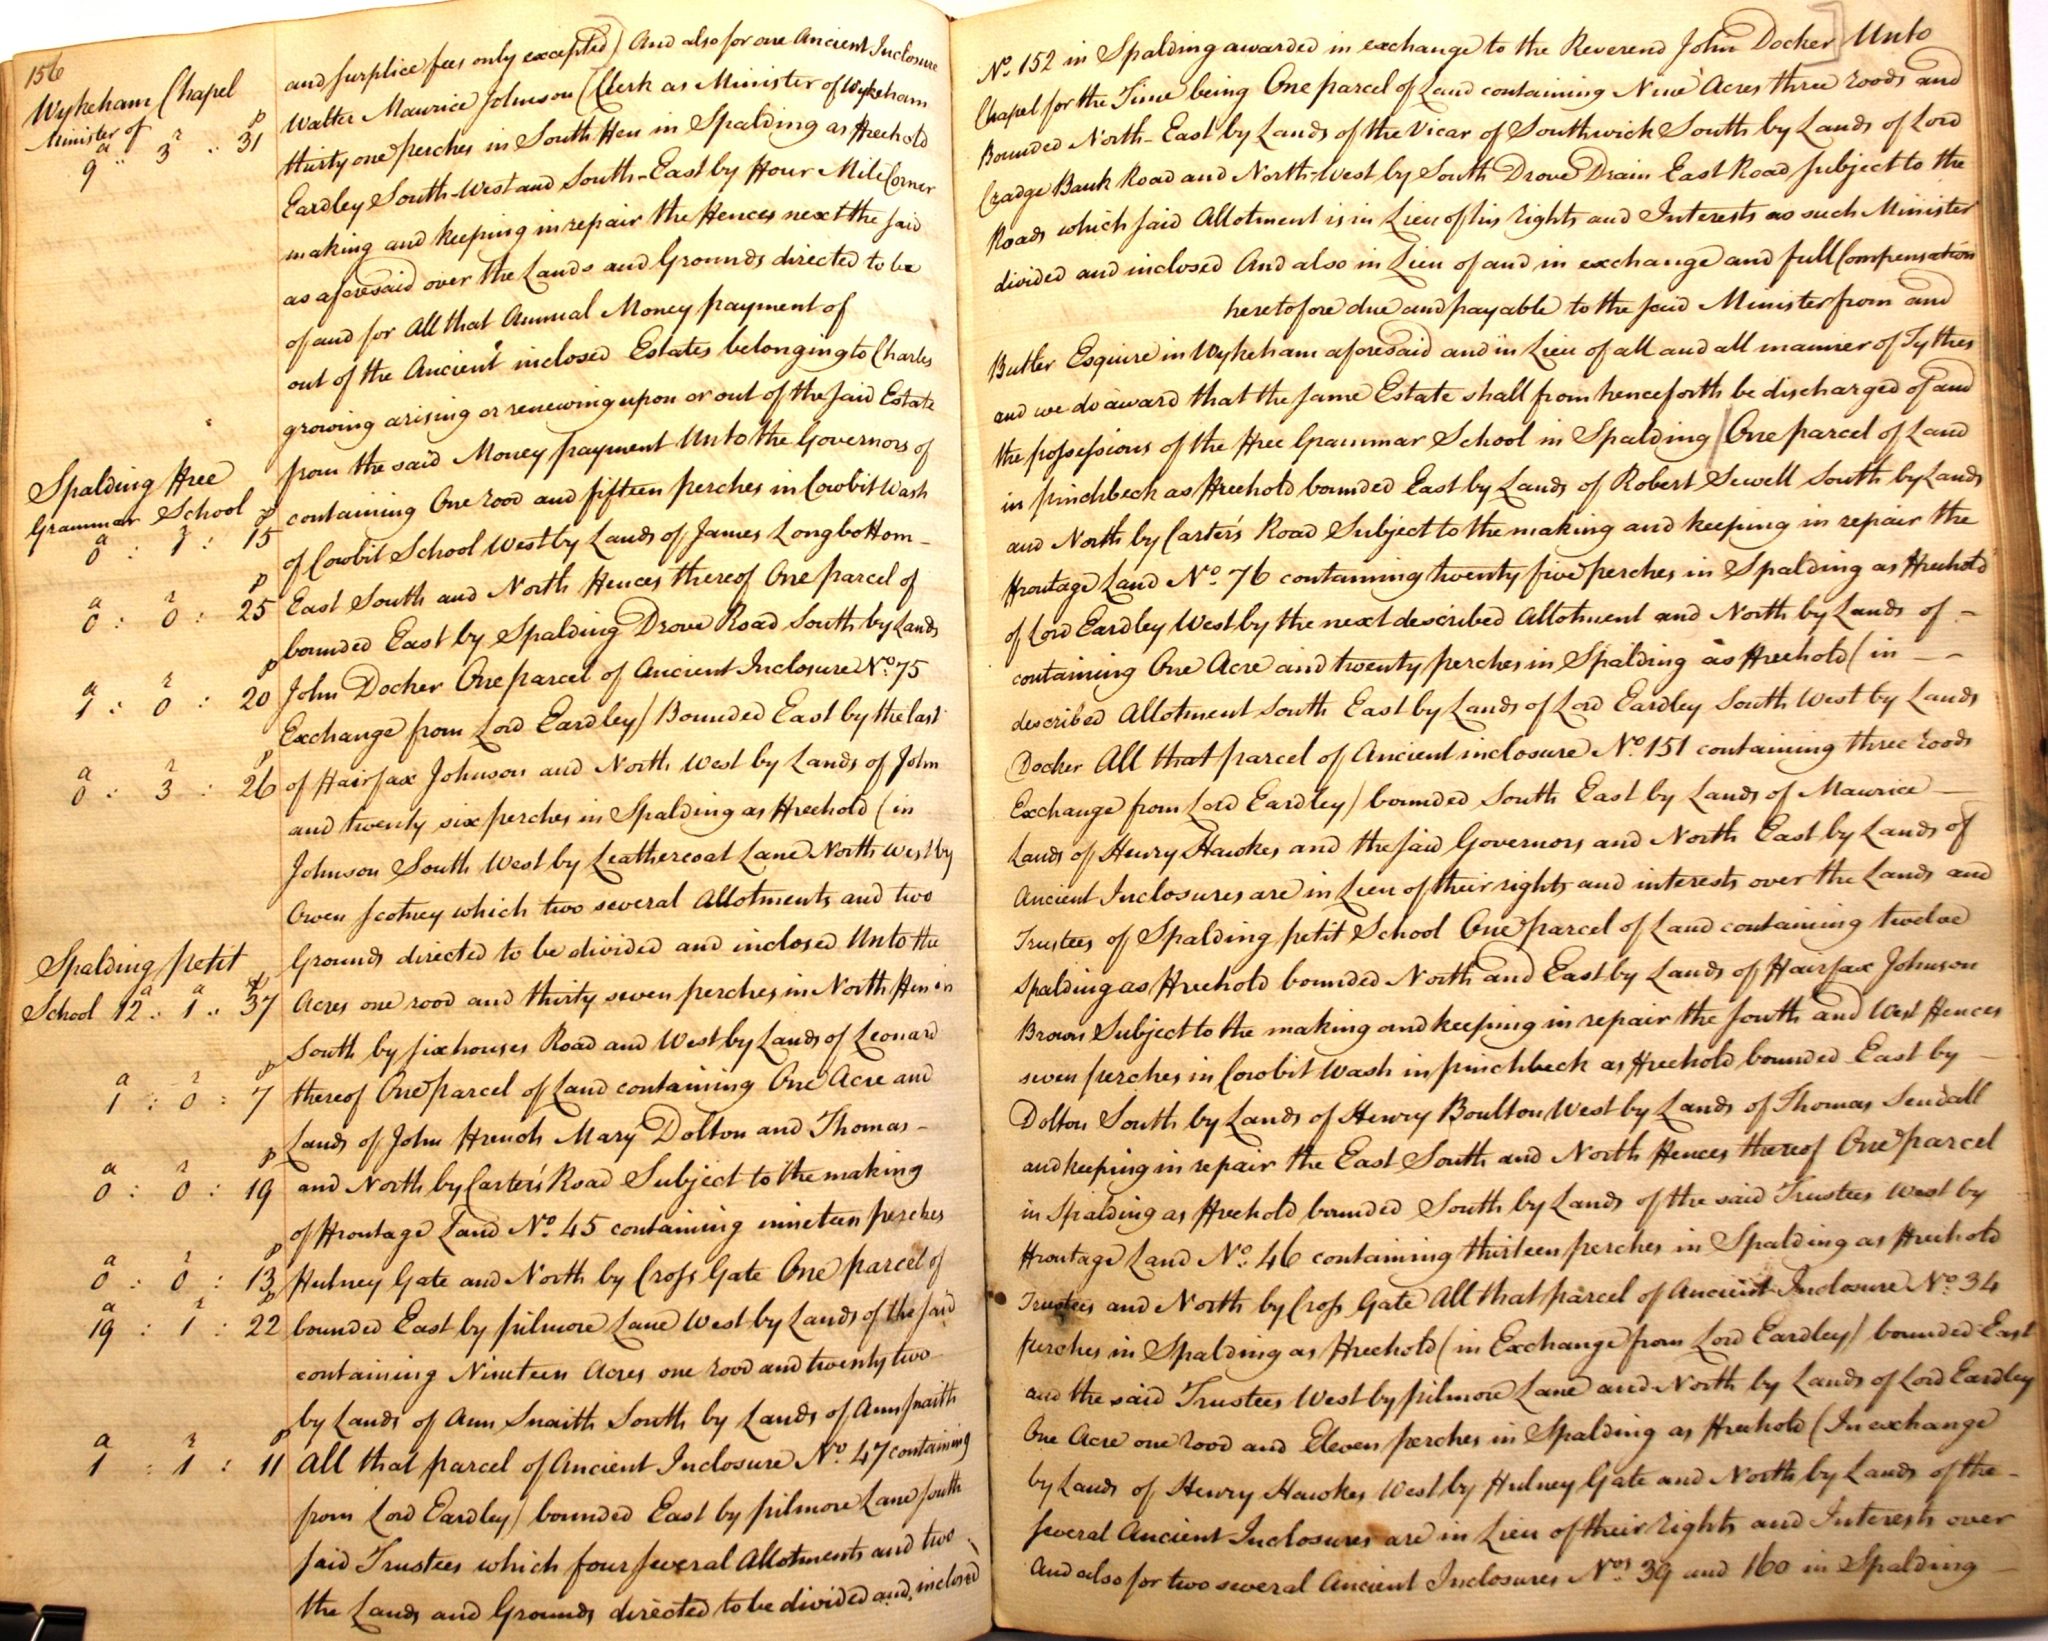 156
Wykeham Chapel
Minister of
a r p
9 .. 3 .. 31
and surplice fees only excepted) And also for one Ancient Inclosure No. 152 in Spalding awarded in exchange to the Reverend John Docker] Unto
Walter Maurice Johnson (Clerk as Minister of Wykeham Chapel for the Time being One parcel of Land containing Nine Acres three roods and
thirty one perches in South Fen in Spalding as Freehold Bounded North-East by Lands of the Vicar of Southwick South by Lands of Lord
Eardley South-West and South-East by Four Mile Corner Cradge Bank Road and North-West by South Drove Drain East Road subject to the
making and keeping in repair the Fences next the said Roads which said Allotment is in Lieu of his rights and Interests as such Minister
as aforesaid over the Lands and Grounds directed to be divided and inclosed And also in Lieu of and in exchange and full Compensation
of and for All that Annual Money payment of heretofore due and payable to the said Minister from and
out of the Ancient inclosed Estates belonging to Charles Butler Esquire in Wykeham aforesaid and in Lieu of all and all manner of Tythes
growing arising or renewing upon or out of the said Estate and we do award that the same Estate shall from henceforth be discharged of and
Spalding Free
Grammar School
a r p
0 : 1 : 15
from the said Money payment Unto the Governors of the possessions of the Free Grammar School in Spalding / One parcel of Land
containing One rood and fifteen perches in Cowbit Wash in pinchbeck as Freehold bounded East by Lands of Robert Sewell South by Lands
of Cowbit School West by Lands of James Longbottom - and North by Carter's Road Subject to the making and keeping in repair the
a r p
0 : 0 : 25
East South and North Fences thereof One parcel of Frontage Land No. 76 containing twenty five perches in Spalding as Freehold
bounded East by Spalding Drove Road South by Lands of Lord Eardley West by the next described Allotment and North by Lands of -
a r p
1 : 0 : 20
John Docker One parcel of Ancient Inclosure No. 75 containing One Acre and twenty perches in Spalding as Freehold (in - -
Exchange from Lord Eardley) Bounded East by the last described Allotment South East by Lands of Lord Eardley South West by Lands
a r p
0 : 3 : 26
of Fairfax Johnson and North West by Lands of John Docker All that parcel of Ancient inclosure No. 151 containing three roods
and twenty six perches in Spalding as Freehold (in Exchange from Lord Eardley) bounded South East by Lands of Maurice -
Johnson South West by Leathercoat Lane North West by Lands of Henry Hawkes and the said Governors and North East by Lands of
Owen Scotney which two several Allotments and two Ancient Inclosures are in Lieu of their rights and interests over the Lands and
Spalding petit
School
a r p
12 .. 1 .. 37
Grounds directed to be divided and inclosed Unto the Trustees of Spalding petit School One parcel of Land containing twelve
Acres one rood and thirty seven perches in North Fen in Spalding as Freehold bounded North and East by Lands of Fairfax Johnson
South by six houses Road and West by Lands of Leonard Brown Subject to the making and keeping in repair the South and West Fences
a r p
1 : 0 : 7
thereof One parcel of Land containing One Acre and seven perches in Cowbit Wash in pinchbeck as Freehold bounded East by -
Lands of John French Mary Dolton and Thomas - Dolton South by Lands of Henry Boulton West by Lands of Thomas Sendall
a r p
0 : 0 : 19
and North by Carter's Road Subject to the making and keeping in repair the East South and North Fences thereof One parcel
of Frontage Land No. 45 containing nineteen perches in Spalding as Freehold bounded South by Lands of the said Trustees West by
a r p
0 : 0 : 13
Fulney Gate and North by Cross Gate One parcel of Frontage Land No. 46 containing thirteen perches in Spalding as Freehold
a r p
19 : 1 : 22
bounded East by pilmore Lane West by Lands of the said Trustees and North by Cross Gate All that parcel of Ancient Inclosure No. 34
containing Nineteen Acres one rood and twenty two perches in Spalding as Freehold (in Exchange from Lord Eardley) bounded East
by Lands of Ann Snaith South by Lands of Ann Snaith and the said Trustees West by pilmore Lane and North by Lands of Lord Eardley
a r p
1 : 1 : 11
All that parcel of Ancient Inclosure No. 47 containing One Acre one rood and Eleven perches in Spalding as Freehold (In exchange
from Lord Eardley) bounded East by pilmore Lane South by Lands of Henry Hawkes West by Fulney Gate and North by Lands of the -
said Trustees which four several Allotments and two several Ancient Inclosures are in Lieu of their rights and Interests over
the Lands and Grounds directed to be divided and inclosed And also for two several Ancient Inclosures Nos. 39 and 160 in Spalding -